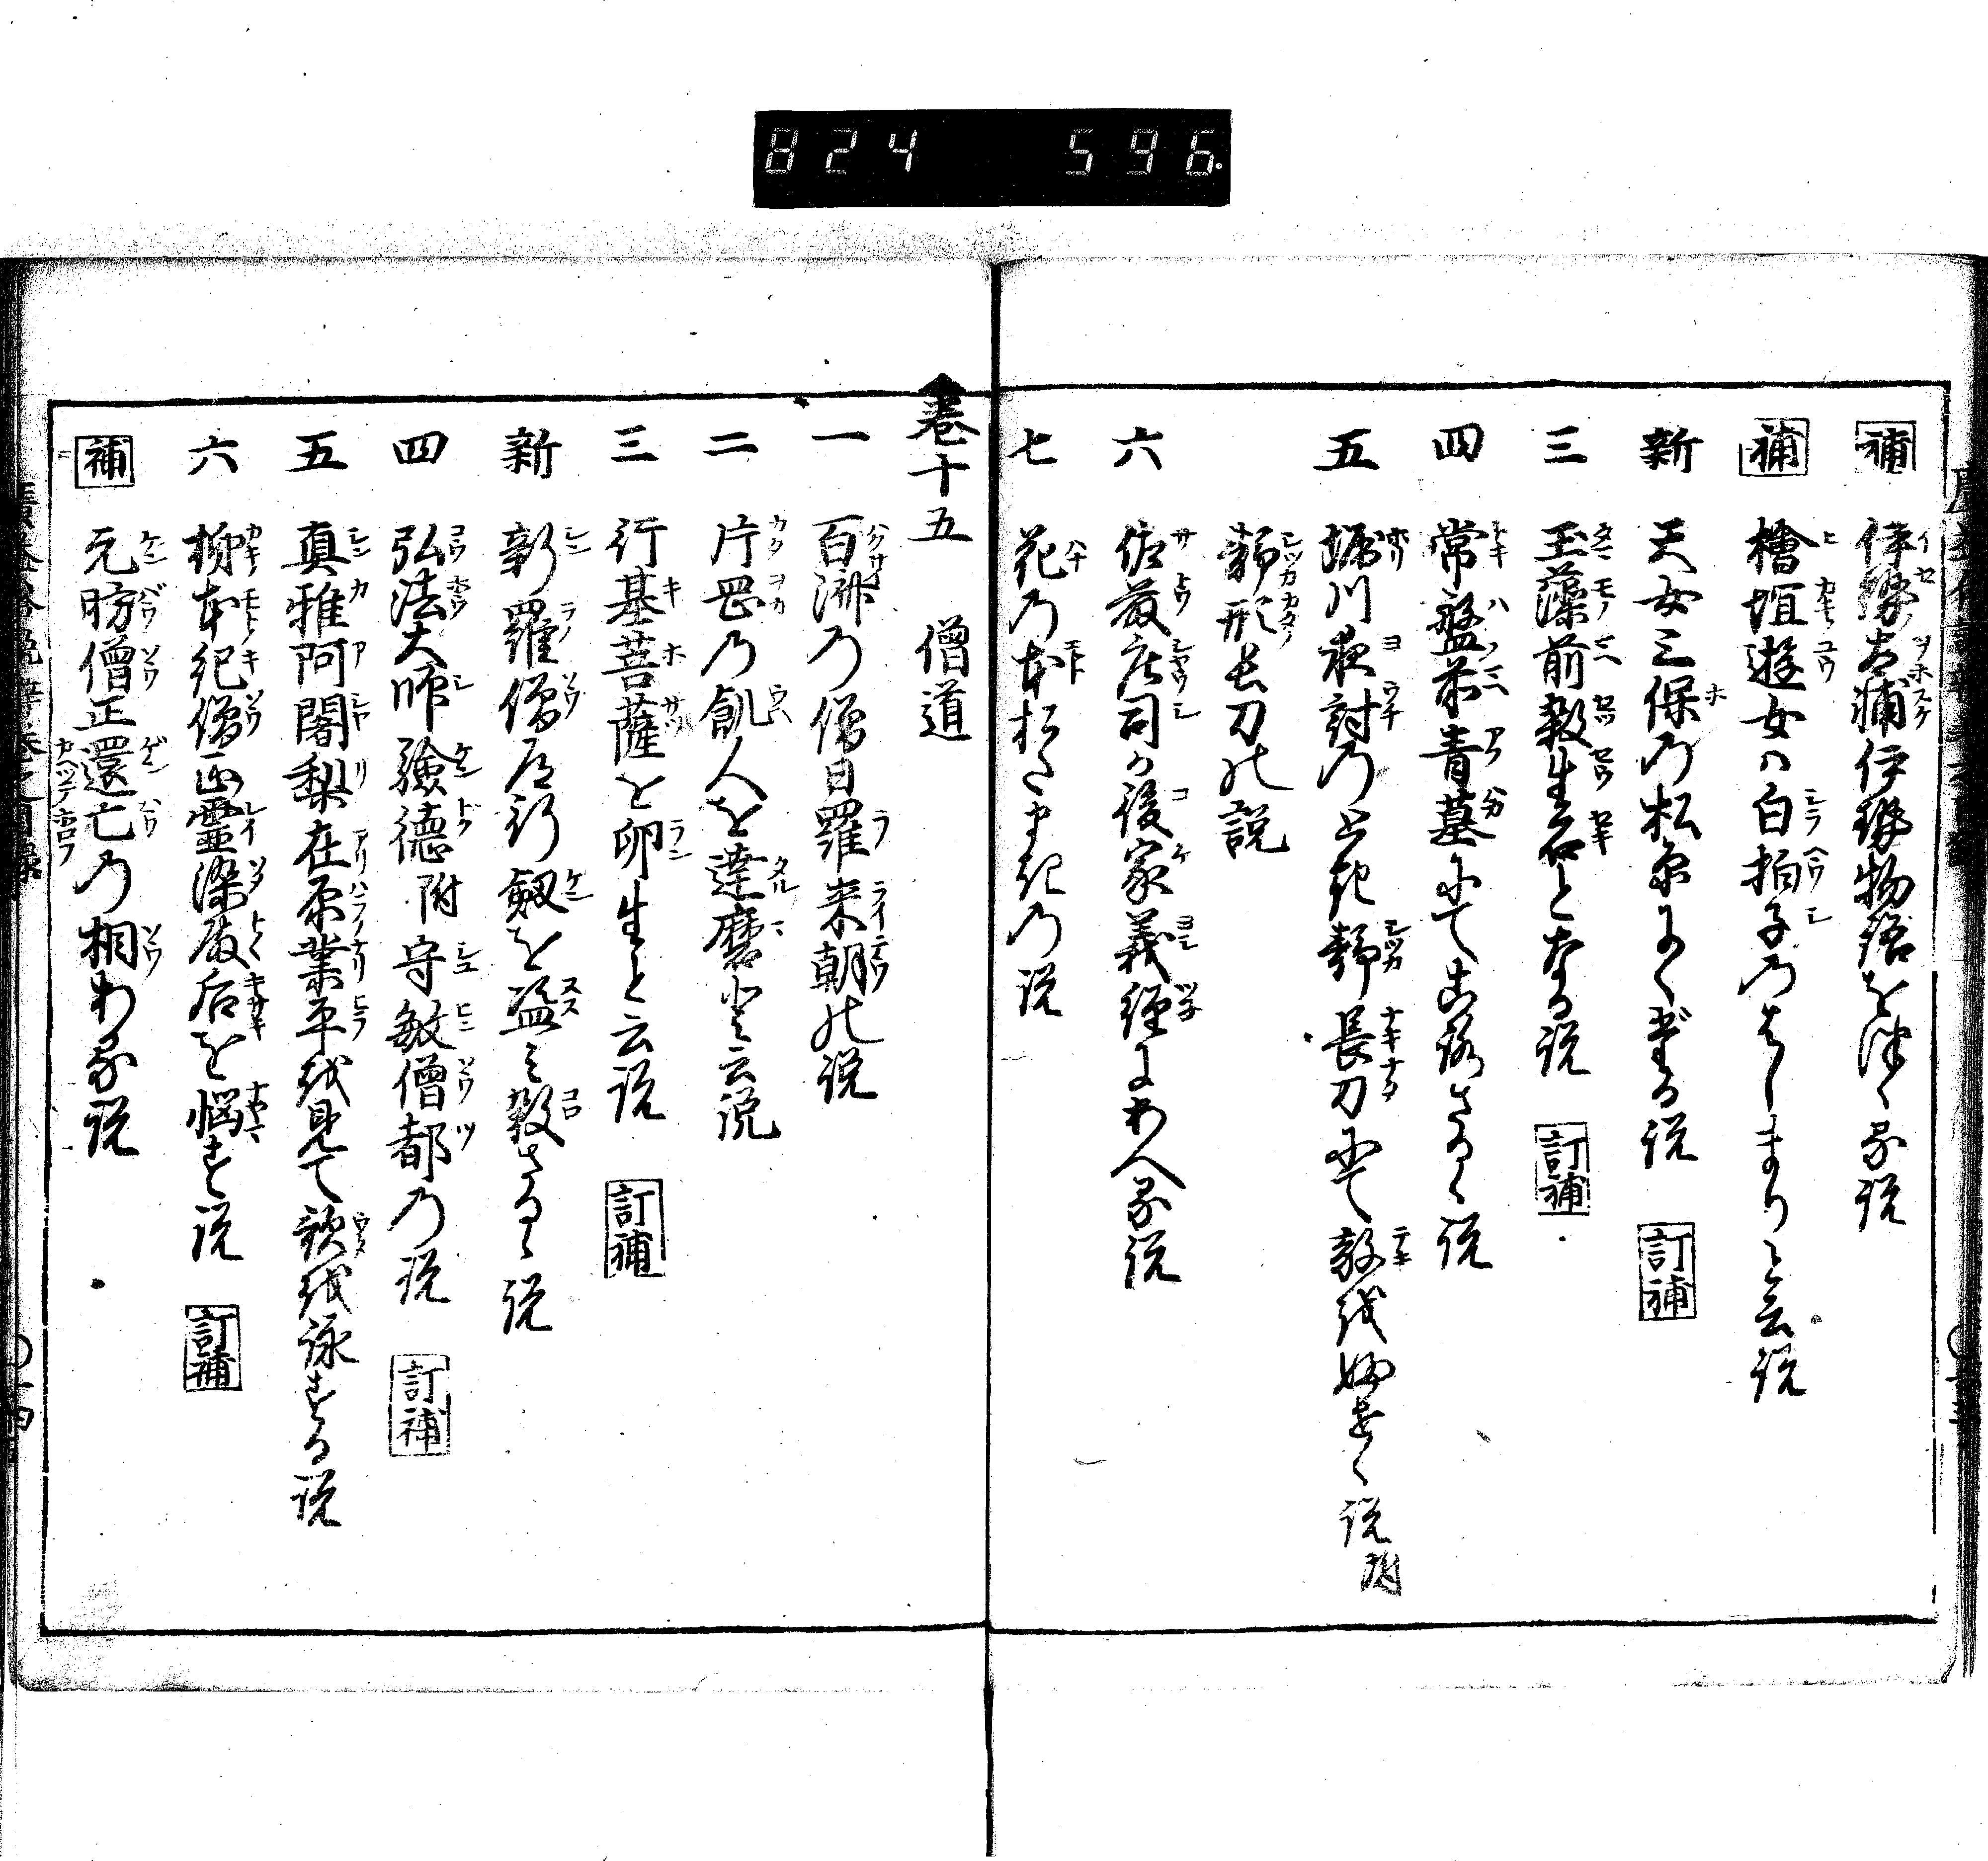 824 596.
補 伊勢大輔伊勢物語を作る説
補 檜垣遊女ハ白拍子のはしまりと云説
新 天女三保の松原にくだる説 訂補
三 玉藻前殺生石となる説 訂補
四 常盤前青墓にてころさるゝ説
五 堀川夜討のとき静長刀にて敵を防ぐ説附
静形長刀の説
六 佐藤庄司が後家義経にあへる説
七 花の本
卷十五 僧道
一 百済の僧日羅来朝の説
二 片岡の飢人を達磨と云説
三 行基菩薩を卵生と云説 訂補
新 新羅僧道行劔を盗み殺さるゝ説
四 弘法大師験徳附守敏僧都の説 訂補
五 真雅阿闍梨在原業平を見て歌を詠ずる説
六 柿本紀僧正霊染殿后を悩す説 訂補
補 元昉僧正還亡の相ある説